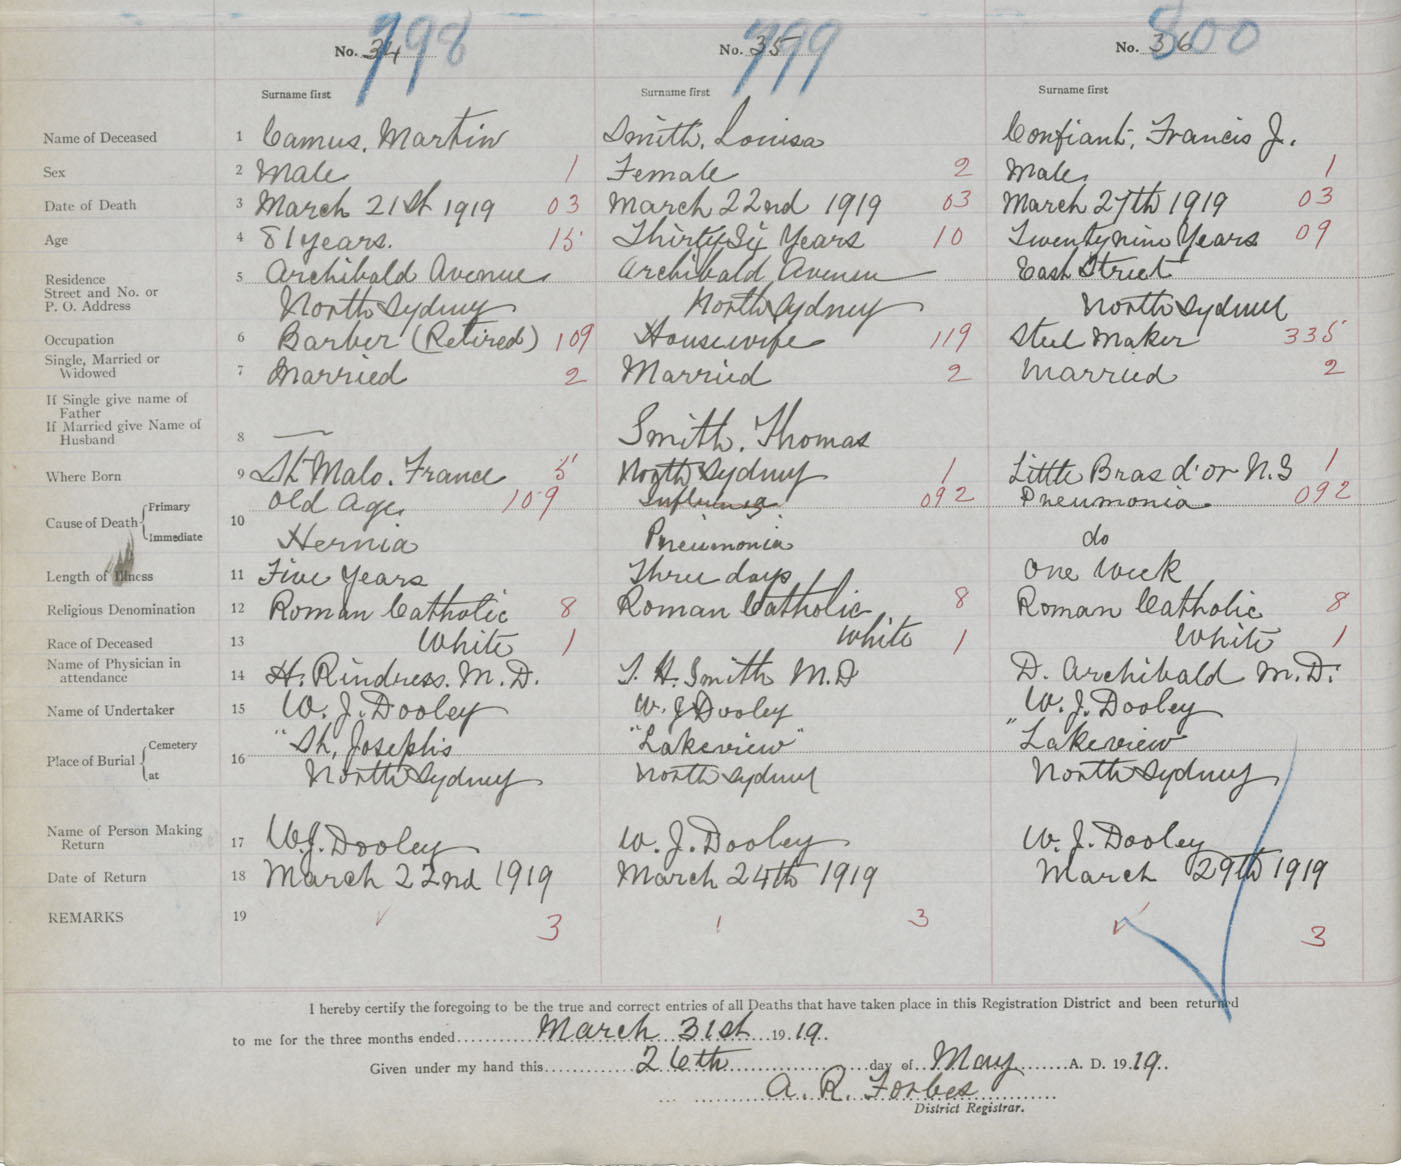 798 799 800
No. 34 No. 35 No. 36
Surname first Surname first Surname first
Name of Deceased 1 Camus, Martin Smith, Louisa Confiant, Francis J.
Sex 2 Male 1 Female 2 Male 1
Date of Death 3 March 21st 1919 03 March 22nd 1919 03 March 27th 1919 03
Age 4 81 years. 15 Thirty Six Years 10 Twenty nine Years 09
Residence
Street and No. or
P. O. Address
5 Archibald Avenue Archibald Avenue East Street
North Sydney North Sydney North Sydney
Occupation 6 Barber (Retired) 109 Housewife 119 Steel Maker 335
Single, Married or
Widowed
7 Married 2 Married 2 Married 2
If Single give name of
Father
If Married give Name of
Husband
8 — Smith, Thomas
Where Born 9 St Malo. France 5 North Sydney 1 Little Bras d'or N.S 1
Cause of Death Primary 10 Old Age 109 Influenza 092 Pneumonia 092
Immediate Hernia Pneumonia do
Length of Illness 11 Five Years Three days One Week
Religious Denomination 12 Roman Catholic 8 Roman Catholic 8 Roman Catholic 8
Race of Deceased 13 White 1 White 1 White 1
Name of Physician in
attendance
14 H. Rindress. M.D. T. H. Smith M.D D. Archibald M.D.
Name of Undertaker 15 W. J. Dooley W. J. Dooley W. J. Dooley
Place of Burial Cemetery 16 "St. Joseph's "Lakeview" "Lakeview
at North Sydney North Sydney North Sydney
Name of Person Making
Return
17 W. J. Dooley W. J. Dooley W. J. Dooley
Date of Return 18 March 22nd 1919 March 24th 1919 March 29th 1919
REMARKS 19 3 3 3
I hereby certify the foregoing to be the true and correct entries of all Deaths that have taken place in this Registration District and been returned
to me for the three months ended March 31st 1919.
Given under my hand this 26th day of May A. D. 1919.
A. R. Forbes
District Registrar.